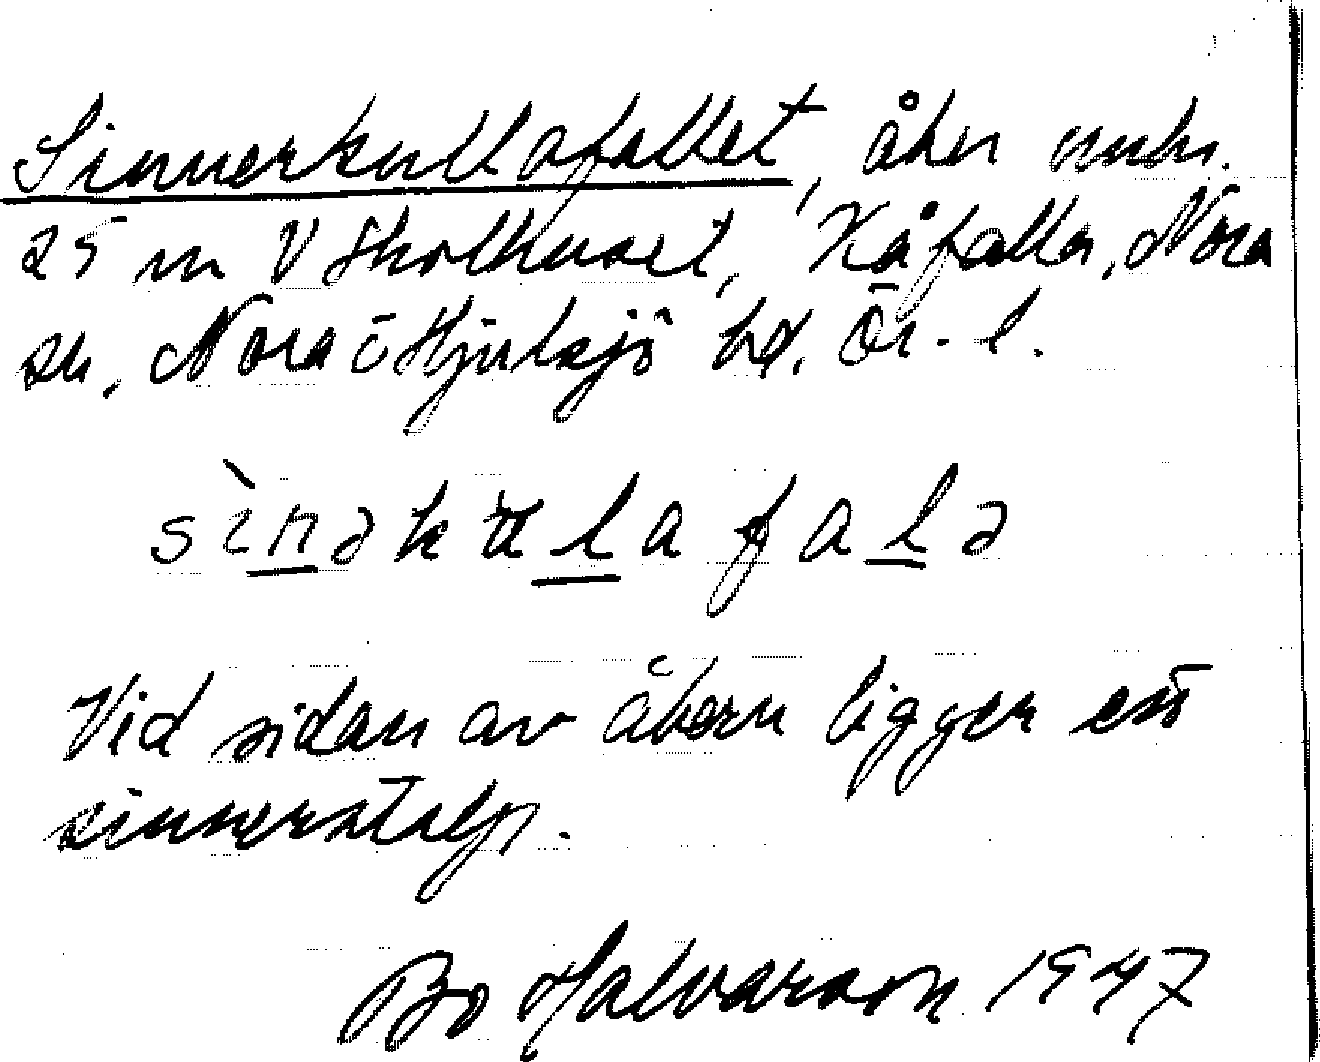 Sinnerkullafallet, åker omkr.
25 m V Skolhuset, Kåfalla, Nora
sn, Nora o Hjulsjö bd. Ör. l.
sìnəkulafalə
Vid sidan av åkern ligger en
sinnerstalp.
Bo Halvarson 1947